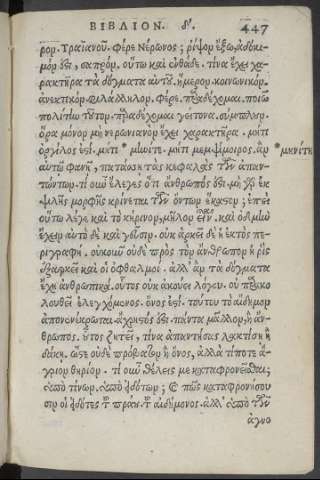 ΒΙΒΛΙΟΝ. δʹ. 447
ρον. Τραϊανοῦ. φέρε Νέρωνος; ῥίψον ἔξω, ἀδόκι-
μόν ἐστι, σαπρόν. οὕτω καὶ ἐνθάδε. τίνα ἔχει χα-
ρακτῆρα τὰ δόγματα αὐτοῦ. ἥμερον. κοινωνικόν.
ἀνεκτικόν. φιλάλληλον. φέρε. παραδέχομαι. ποιῶ
πολίτην τοῦτον. παραδέχομαι γείτονα. σύμπλουν.
ὅρα μόνον μὴ νερωνιανὸν ἔχει χαρακτῆρα. μήτι
ὀργίλος ἐστί. μήτι * μίωιτε. μήτι μεμψίμοιρος. ἂν * μηνίτης
αὐτῷ φανῇ, πατάσσει τὰς κεφαλὰς τῶν ἀπαν-
τώντων. τί οὖν ἔλεγες ὅτι ἄνθρωπός ἐστι. μὴ γὰρ ἐκ
ψιλῆς μορφῆς κρίνεται τῶν ὄντων ἕκαστον; ἐπεὶ
οὕτω λέγε καὶ τὸ κήρινον, μῆλον εἶναι. καὶ ὀδμὴν
ἔχειν αὐτὸ δὲ καὶ γεῦσιν. οὐκ ἀρκεῖ δὲ ἡ ἐκτὸς πε-
ριγραφή. οὐκοῦν οὐδὲ πρὸς τὸν ἄνθρωπον ἡ ῥὶς
ἐξαρκεῖ καὶ οἱ ὀφθαλμοί. ἀλλ' ἂν τὰ δόγματα
ἔχῃ ἀνθρωπικά. οὗτος οὐκ ἀκούει λόγου. οὐ παρακο
λουθεῖ ἐλεγχόμενος. ὄνος ἐστί. τούτου τὸ αἰδῆμον
ἀπονενέκρωται. ἄχρηστός ἐστι. πάντα μᾶλλον, ἢ ἄν-
θρωπος. οὗτος ζητεῖ, τίνα ἀπαντήσας λακτίσῃ ἢ
δάκῃ. ὥστε οὐδὲ πρόβατον ἢ ὄνος, ἀλλά τί ποτε ἄ-
γριον θηρίον. τί οὖν θέλεις με καταφρονεῖσθαι;
ὑπὸ τίνων. ὑπὸ εἰδότων; καὶ πῶς καταφρονήσου
σιν οἱ εἰδότες τοῦ πράου. τοῦ αἰδήμονος. ἀλλ' ὑπὸ τῶν
ἀγνο